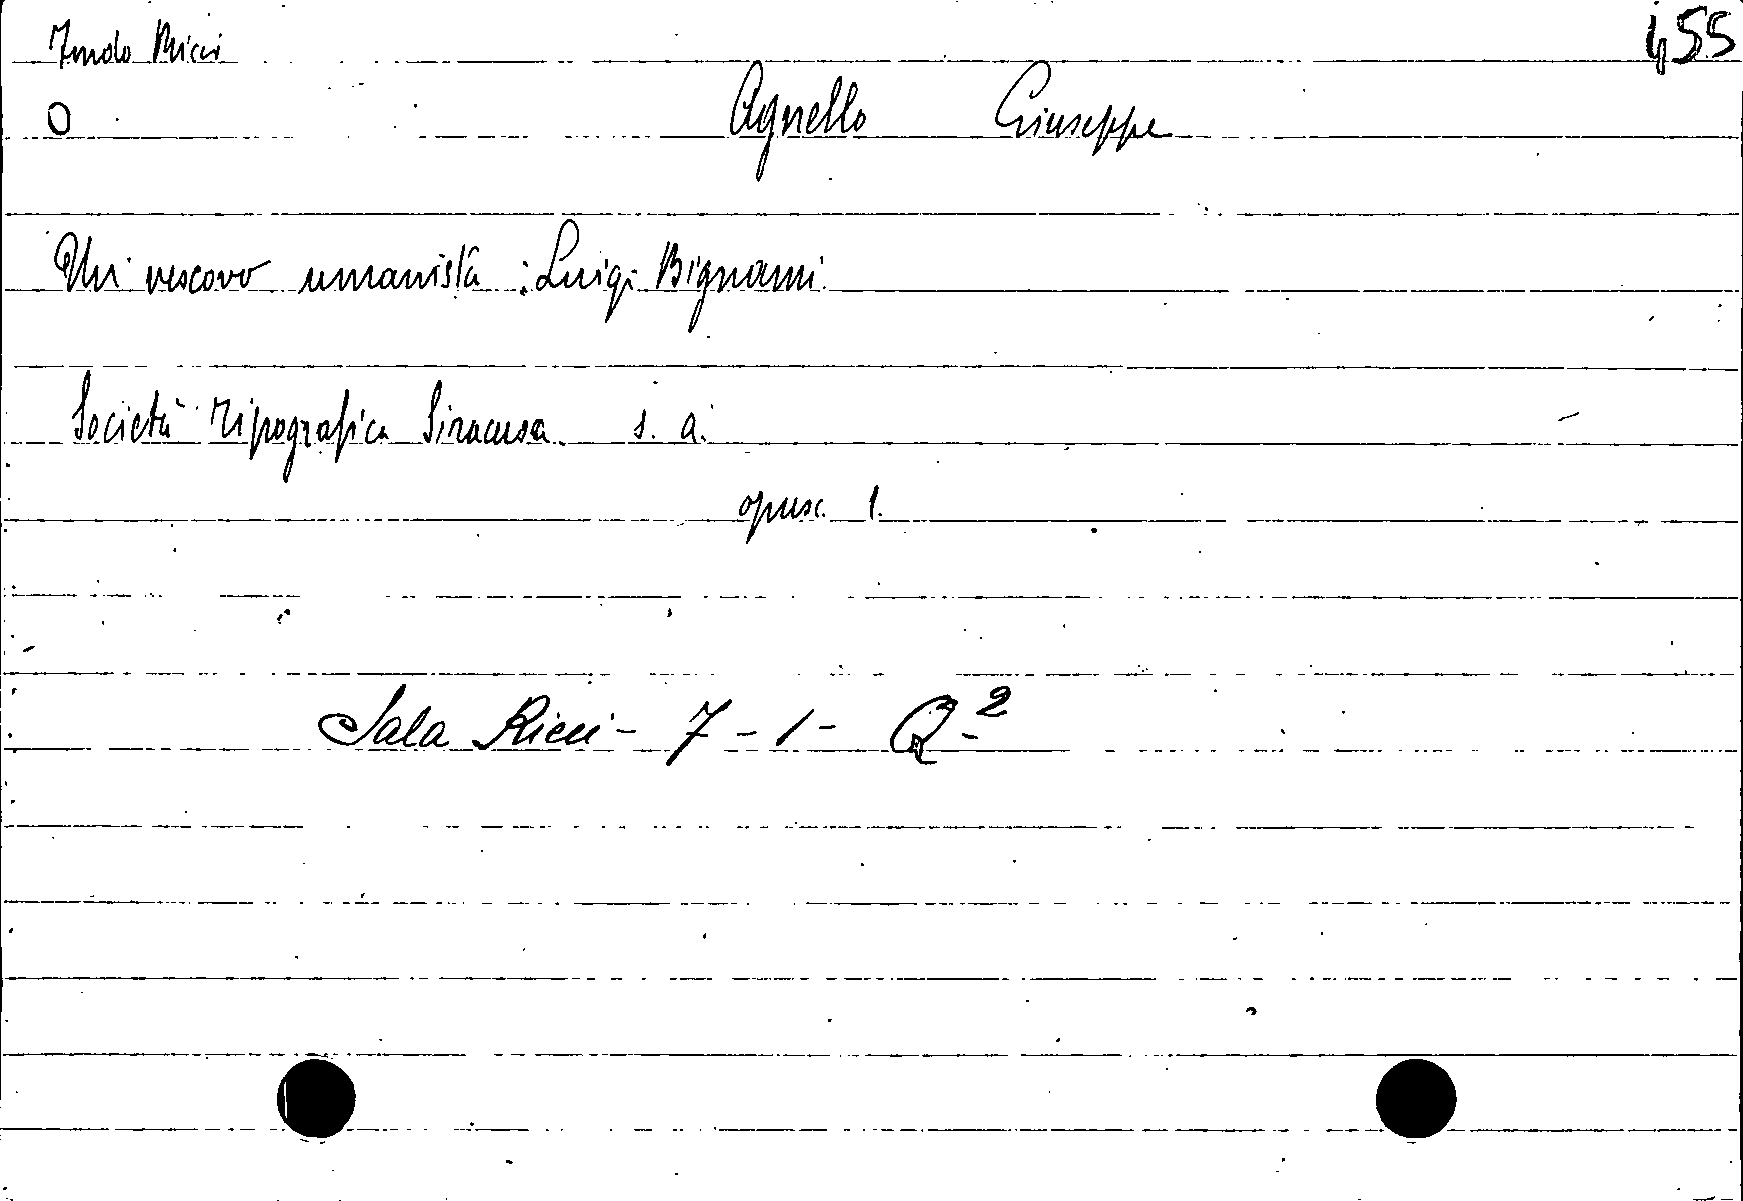 Fondo Ricci
455
O
Agnello Giuseppe
Un vescovo umanista : Luigi Bignami
Società Tipografica Siracusa. s. a.
opusc. 1.
Sala Ricci - 7 - 1 - Q²